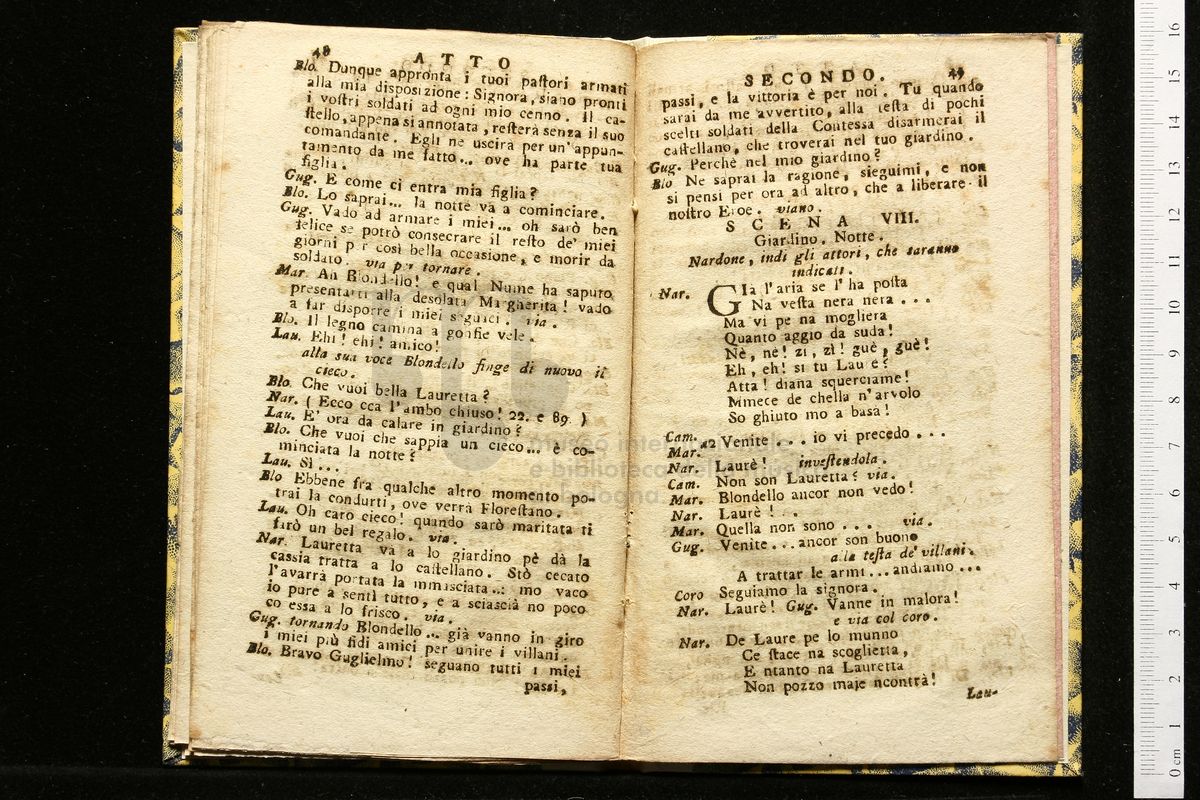 48 ATTO
Blo. Dunque appronta i tuoi pastori armati
alla mia disposizione: Signora, siano pronti
i vostri soldati ad ogni mio cenno. Il ca-
stello, appena si annotata, resterà senza il suo
comandante. Egli ne uscirà per un' appun-
tamento da me fatto... ove ha parte tua
figlia.
Gug. E come ci entra mia figlia?
Blo. Lo saprai... la notte và a cominciare.
Gug. Vado ad armare i miei... oh sarò ben
felice se potrò consecrare il resto de' miei
giorni per così bella occasione, e morir da
soldato. via per tornare.
Mar. Ah Blondello! e qual Nume ha saputo
presentarti alla desolata Margherita! vado
a far disporre i miei seguaci. via.
Blo. Il legno camina a gonfie vele.
Lau. Ehi! ehi! amico!
alla sua voce Blondello finge di nuovo il
cieco.
Blo. Che vuoi bella Lauretta?
Nar. (Ecco cca l'ambo chiuso! 22. e 89.)
Lau. E' ora da calare in giardino?
Blo. Che vuoi che sappia un cieco... è co-
minciata la notte?
Lau. Sì...
Blo Ebbene fra qualche altro momento po-
trai là condurti, ove verrà Florestano.
Lau. Oh caro cieco! quando sarò maritata ti
farò un bel regalo. via.
Nar. Lauretta và a lo giardino pè dà la
cassia tratta a lo castellano. Stò cecato
l'avarrà portata la mmasciata... mo vaco
io pure a sentì tutto, e a sciascià no poco
co essa a lo frisco. via.
Gug. tornando Blondello... già vanno in giro
i miei più fidi amici per unire i villani.
Blo. Bravo Guglielmo! seguano tutti i miei
passi,
SECONDO. 49
passi, e la vittoria è per noi. Tu quando
sarai da me avvertito, alla testa di pochi
scelti soldati della Contessa disarmerai il
castellano, che troverai nel tuo giardino.
Gug. Perchè nel mio giardino?
Blo Ne saprai la ragione, sieguimi, e non
si pensi per ora ad altro, che a liberare il
nostro Eroe. viano.
SCENA VIII.
Giardino. Notte.
Nardone, indi gli attori, che saranno
indicati.
Nar. GIà l'aria se l'ha posta
Na vesta nera nera...
Ma vi pe na mogliera
Quanto aggio da suda!
Nè, nè! zi, zì! guè, guè!
Eh, eh! si tu Laurè?
Atta! diana squerciame!
Mmece de chella n'arvolo
So ghiuto mo a basà!
Cam.
Mar. a2 Venite!... io vi precedo...
Nar. Laurè! investendola.
Cam. Non son Lauretta! via.
Mar. Blondello ancor non vedo!
Nar. Laurè!..
Mar. Quella non sono... via.
Gug. Venite... ancor son buono
alla testa de' villani.
A trattar le armi... andiamo...
Coro Seguiamo la signora.
Nar. Laurè! Gug. Vanne in malora!
e via col coro.
Nar. De Laure pe lo munno
Ce stace na scoglietta,
E ntanto na Lauretta
Non pozzo maje ncontrà!
Lau-